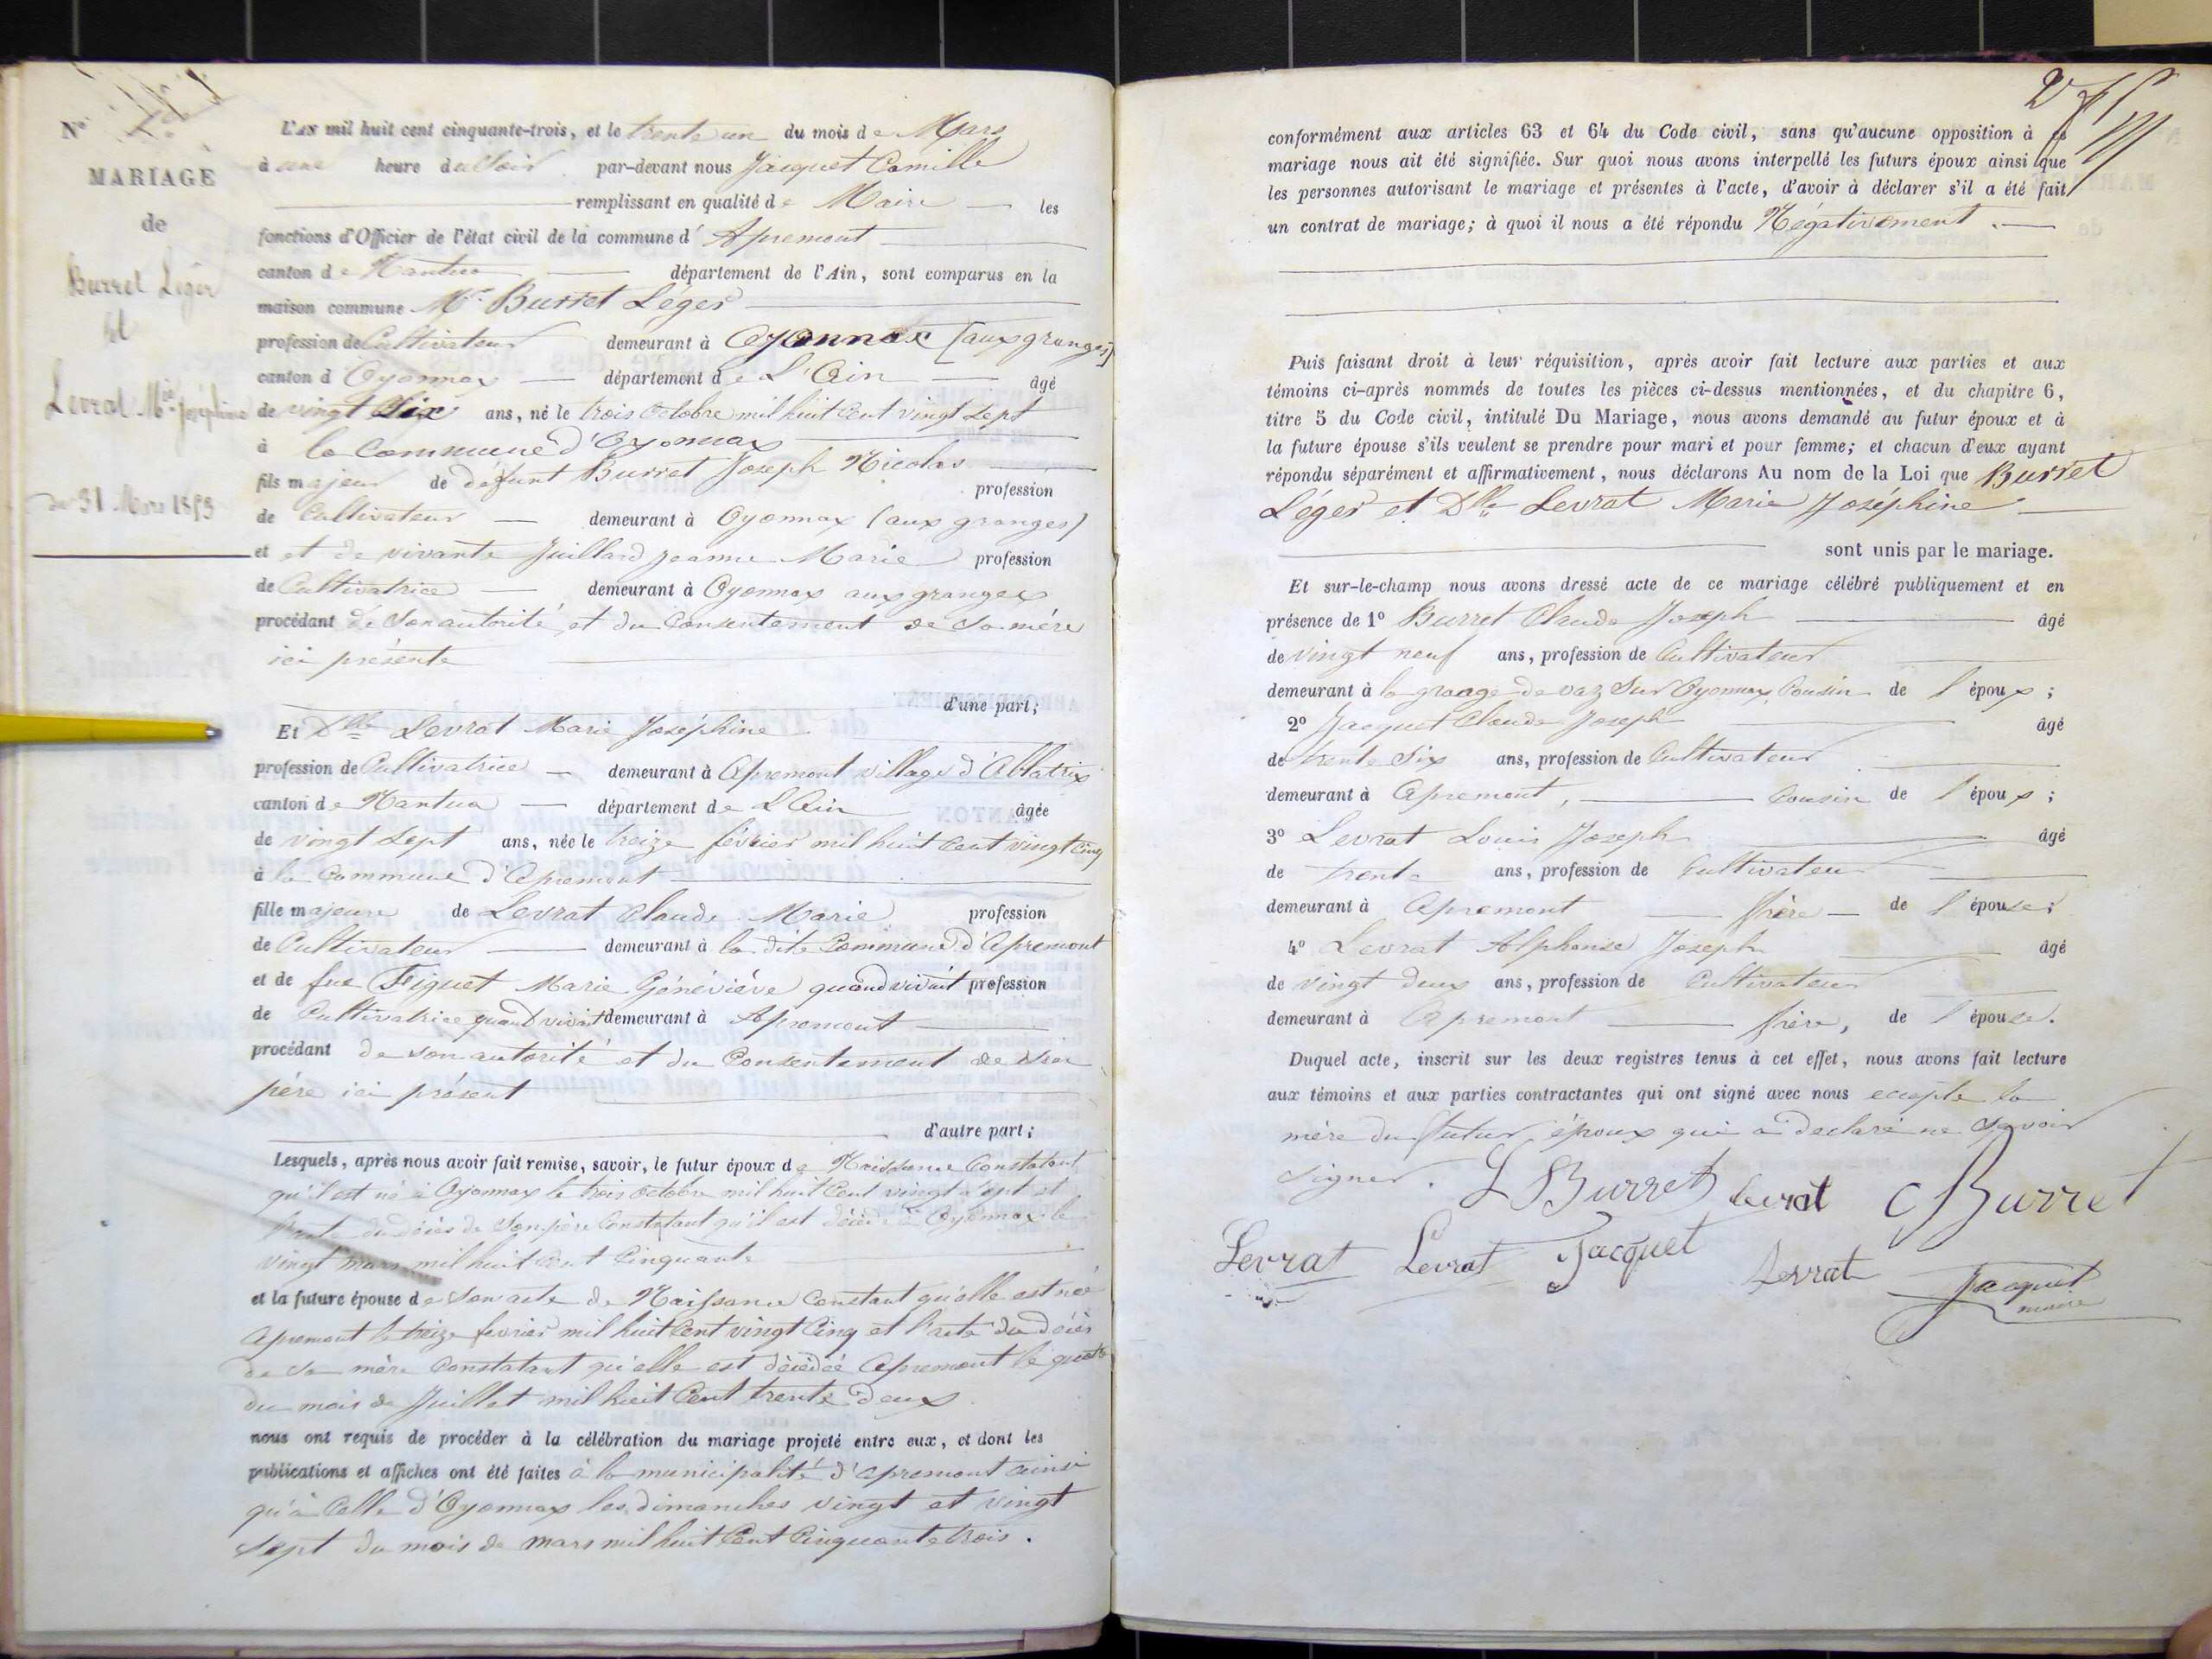 Nº
MARIAGE
de
Burret Léger
et
Levrat Mie Joséphine
du 31 Mars 1853
L'AN mil huit cent cinquante-trois, et le trente un du mois de Mars
à une heure du Soir par-devant nous Jacquet Camille
remplissant en qualité de Maire les
fonctions d'Officier de l'état civil de la commune d'Apremont
canton de Nantua département de l'Ain, sont comparus en la
maison commune Mr Burret Léger
profession de Cultivateur demeurant à Oyonnax (aux granges)
canton d'Oyonnax département de L'Ain âgé
de vingt Six ans, né le trois Octobre mil huit Cent vingt Sept
à la Commune d'Oyonnax
fils majeur de défunt Burret Joseph Nicolas profession
de Cultivateur demeurant à Oyonnax (aux granges)
et et de vivante Juillard Jeanne Marie profession
de Cultivatrice demeurant à Oyonnax aux granges
procédant de Son autorité et du Consentement de Sa mère
ici présente
d'une part;
Et Dlle Levrat Marie Joséphine
profession de Cultivatrice demeurant à Apremont village d'Ablatrix
canton de Nantua département de L'Ain âgée
de vingt Sept ans, née le treize février mil huit Cent vingt Cinq
à la Commune d'Apremont
fille majeure de Levrat Claude Marie profession
de Cultivateur demeurant à la dite Commune d'Apremont
et de fue Figuet Marie Généviève quand vivait profession
de Cultivatrice quand vivait demeurant à Apremont
procédant de son autorité et du Consentement de Son
père ici présent
d'autre part;
Lesquels, après nous avoir fait remise, savoir, le futur époux de Naissance Constatant
qu'il est né à Oyonnax le trois Octobre mil huit Cent vingt Sept et
l'acte du décès de Son père Constatant qu'il est décédé à Oyonnax le
vingt mars mil huit Cent Cinquante
et la future épouse de Son acte de Naissance Constant qu'elle est née
Apremont le treize fevrier mil huit Cent vingt Cinq et l'acte du décès
de Sa mère Constatant qu'elle est décédée Apremont le
du mois de Juillet mil huit Cent trente deux
nous ont requis de procéder à la célébration du mariage projeté entre eux, et dont les
publications et affiches ont été faites à la municipalité d'Apremont ainsi
qu'à Celle d'Oyonnax les dimanches vingt et vingt
Sept du mois de mars mil huit Cent Cinquante trois.
conformément aux articles 63 et 64 du Code civil, sans qu'aucune opposition à ce
mariage nous ait été signifiée. Sur quoi nous avons interpellé les futurs époux ainsi que
les personnes autorisant le mariage et présentes à l'acte, d'avoir à déclarer s'il a été fait
un contrat de mariage; à quoi il nous a été répondu Négativement.
Puis faisant droit à leur réquisition, après avoir fait lecture aux parties et aux
témoins ci-après nommés de toutes les pièces ci-dessus mentionnées, et du chapitre 6,
titre 5 du Code civil, intitulé Du Mariage, nous avons demandé au futur époux et à
la future épouse s'ils veulent se prendre pour mari et pour femme; et chacun d'eux ayant
répondu séparément et affirmativement, nous déclarons Au nom de la Loi que Burret
Léger et Dlle Levrat Marie Joséphine
sont unis par le mariage.
Et sur-le-champ nous avons dressé acte de ce mariage célébré publiquement et en
présence de 1º Burret Claude Joseph âgé
de vingt neuf ans, profession de Cultivateur
demeurant à la grange de vaz Sur Oyonnax Cousin de l'époux;
2º Jacquet Claude Joseph âgé
de trente Six ans, profession de Cultivateur
demeurant à Apremont, Cousin de l'époux;
3º Levrat Louis Joseph âgé
de trente ans, profession de Cultivateur
demeurant à Apremont frère de l'épouse;
4º Levrat Alphonse Joseph âgé
de vingt deux ans, profession de Cultivateur
demeurant à Apremont frère, de l'épouse.
Duquel acte, inscrit sur les deux registres tenus à cet effet, nous avons fait lecture
aux témoins et aux parties contractantes qui ont signé avec nous excepte la
mère du futur époux qui a déclaré ne Savoir
Signer.
L Burret levrat C Burret
Levrat Levrat Jacquet Levrat Jacquet
maire